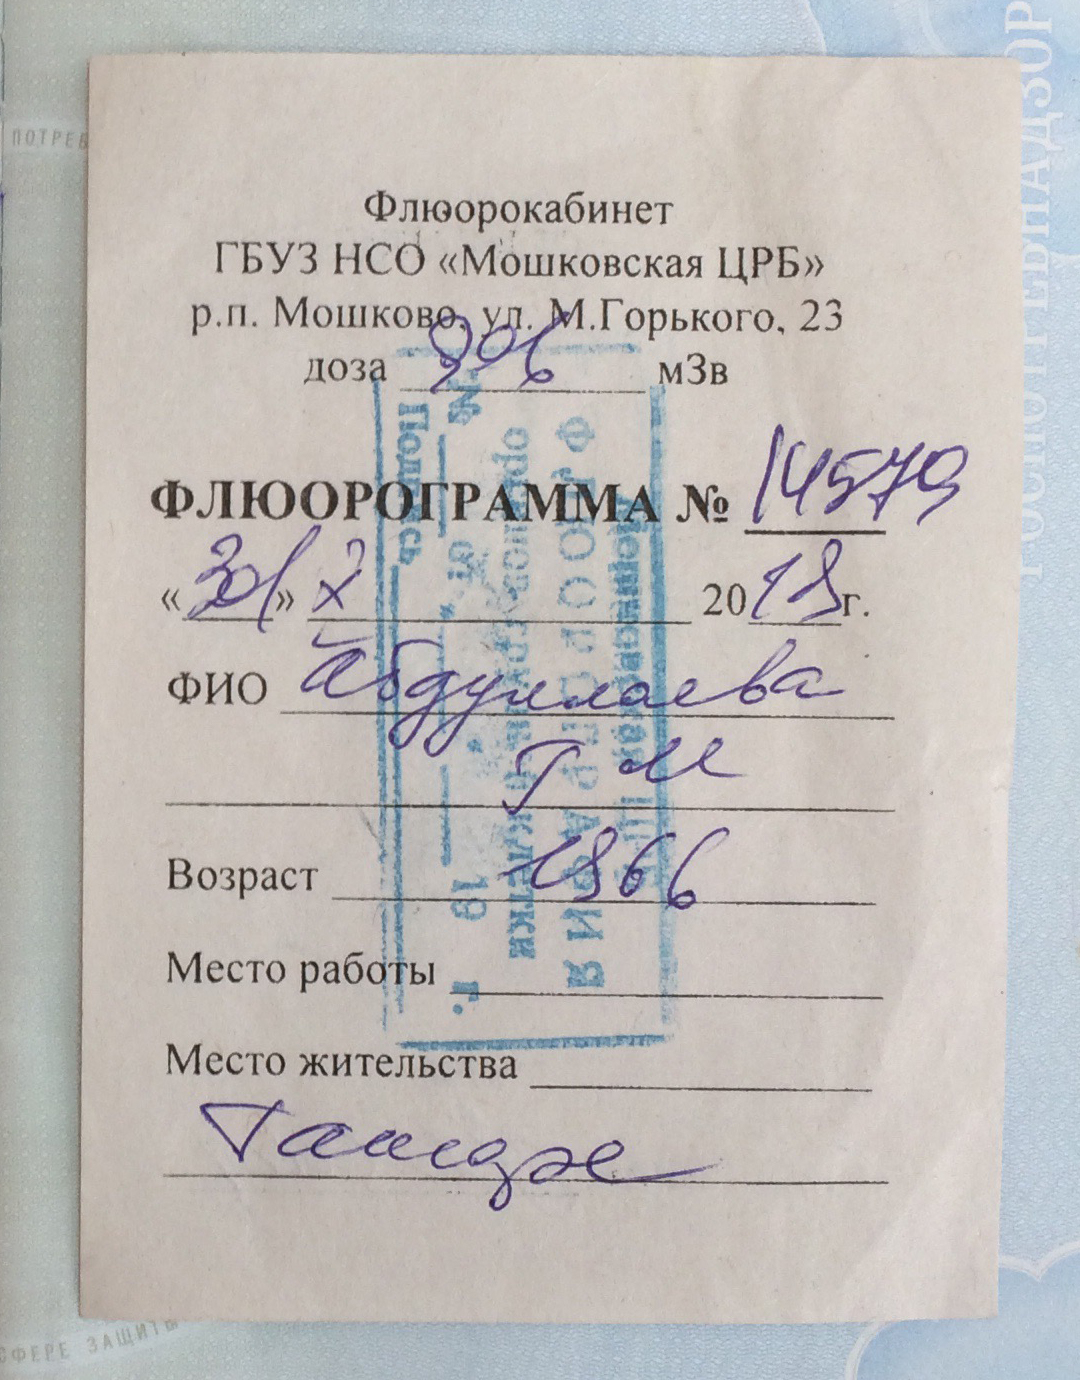 ПОТРЕБ
РОСПОТРЕБНАДЗОР
Флюорокабинет
ГБУЗ НСО «Мошковская ЦРБ»
р.п. Мошково, ул. М.Горького, 23
доза 006 мЗв
ФЛЮОРОГРАММА № 14579
«30» X 2018 г.
ФИО Абдуллаева
Г М
Возраст 1966
Место работы
Место жительства
Ташара
ФЛЮОРОГРАФИЯ
органов грудной клетки
№ от " " 19 г.
Подпись
СФЕРЕ ЗАЩИТЫ